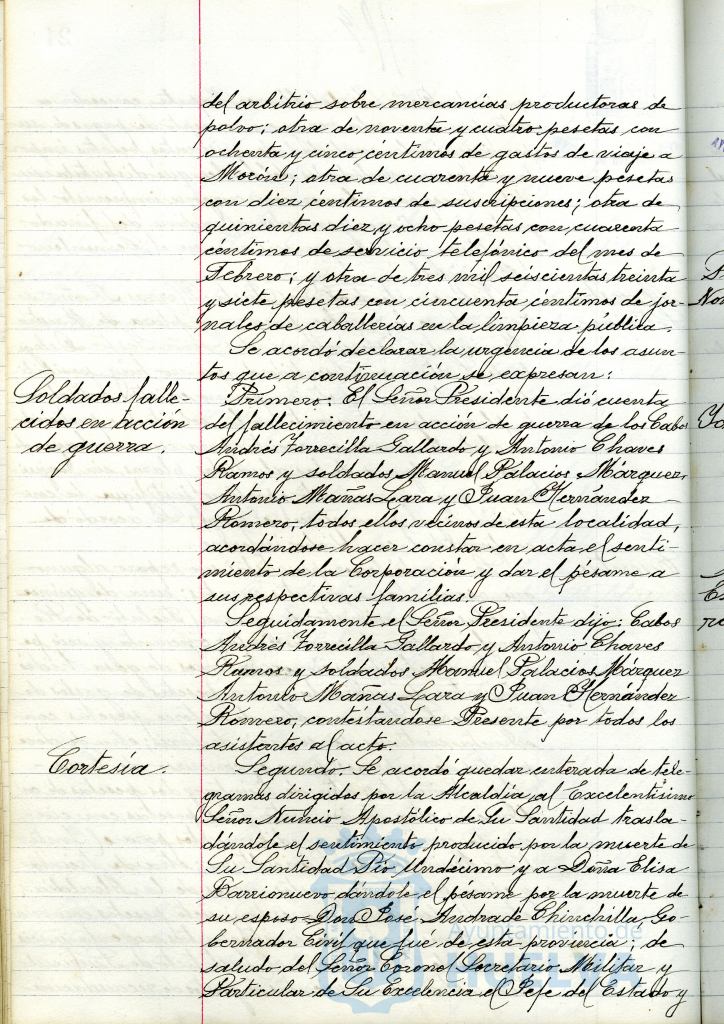 del arbitrio sobre mercancías productoras de
polvo; otra de noventa y cuatro pesetas con
ochenta y cinco céntimos de gastos de viaje a
Morón; otra de cuarenta y nueve pesetas
con diez céntimos de suscripciones; otra de
quinientas diez y ocho pesetas con cuarenta
céntimos de servicio telefónico del mes de
Febrero; y otra de tres mil seiscientas treinta
y siete pesetas con cincuenta céntimos de jor-
nales de caballerías en la limpieza pública.
Se acordó declarar la urgencia de los asun-
tos que a continuación se expresan:
Soldados falle-
cidos en acción
de guerra.
Primero. El Señor Presidente dió cuenta
del fallecimiento en acción de guerra de los Cabos
Andrés Torrecilla Gallardo y Antonio Chaves
Ramos y soldados Manuel Palacios Márquez,
Antonio Mañas Lara y Juan Hernández
Romero, todos ellos vecinos de esta localidad,
acordándose hacer constar en acta el senti-
miento de la Corporación y dar el pésame a
sus respectivas familias.
Seguidamente el Señor Presidente dijo: Cabos
Andrés Torrecilla Gallardo y Antonio Chaves
Ramos y soldados Manuel Palacios Márquez
Antonio Mañas Lara y Juan Hernández
Romero, contestándose Presente por todos los
asistentes al acto.
Cortesía.
Segundo. Se acordó quedar enterada de tele-
gramas dirigidos por la Alcaldía al Excelentísimo
Señor Nuncio Apostólico de Su Santidad trasla-
dándole el sentimiento producido por la muerte de
Su Santidad Pío Undécimo y a Doña Elisa
Barrionuevo dándole el pésame por la muerte de
su esposo Don José Andrade Chinchilla, Go-
bernador Civil que fué de esta provincia; de
saludo del Señor Coronel Secretario Militar y
Particular de Su Excelencia el Jefe del Estado y
Ayuntamiento de
HUELVA